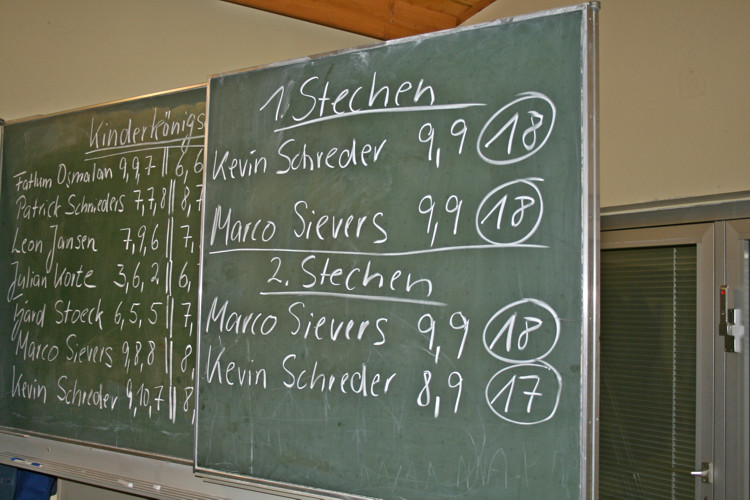 Kinderkönigs
Fathum Osmalan 9,9,7 || 6,6
Patrick Schnieders 7,7,8 || 8,7
Leon Jansen 7,9,6 || 7,
Julian Korte 3,6,2 || 6,
Fjard Stoeck 6,5,5 || 7,
Marco Sievers 9,8,8 || 8,
Kevin Schreder 9,10,7 || 8,
1. Stechen
Kevin Schreder 9,9 18
Marco Sievers 9,9 18
2. Stechen
Marco Sievers 9,9 18
Kevin Schreder 8,9 17